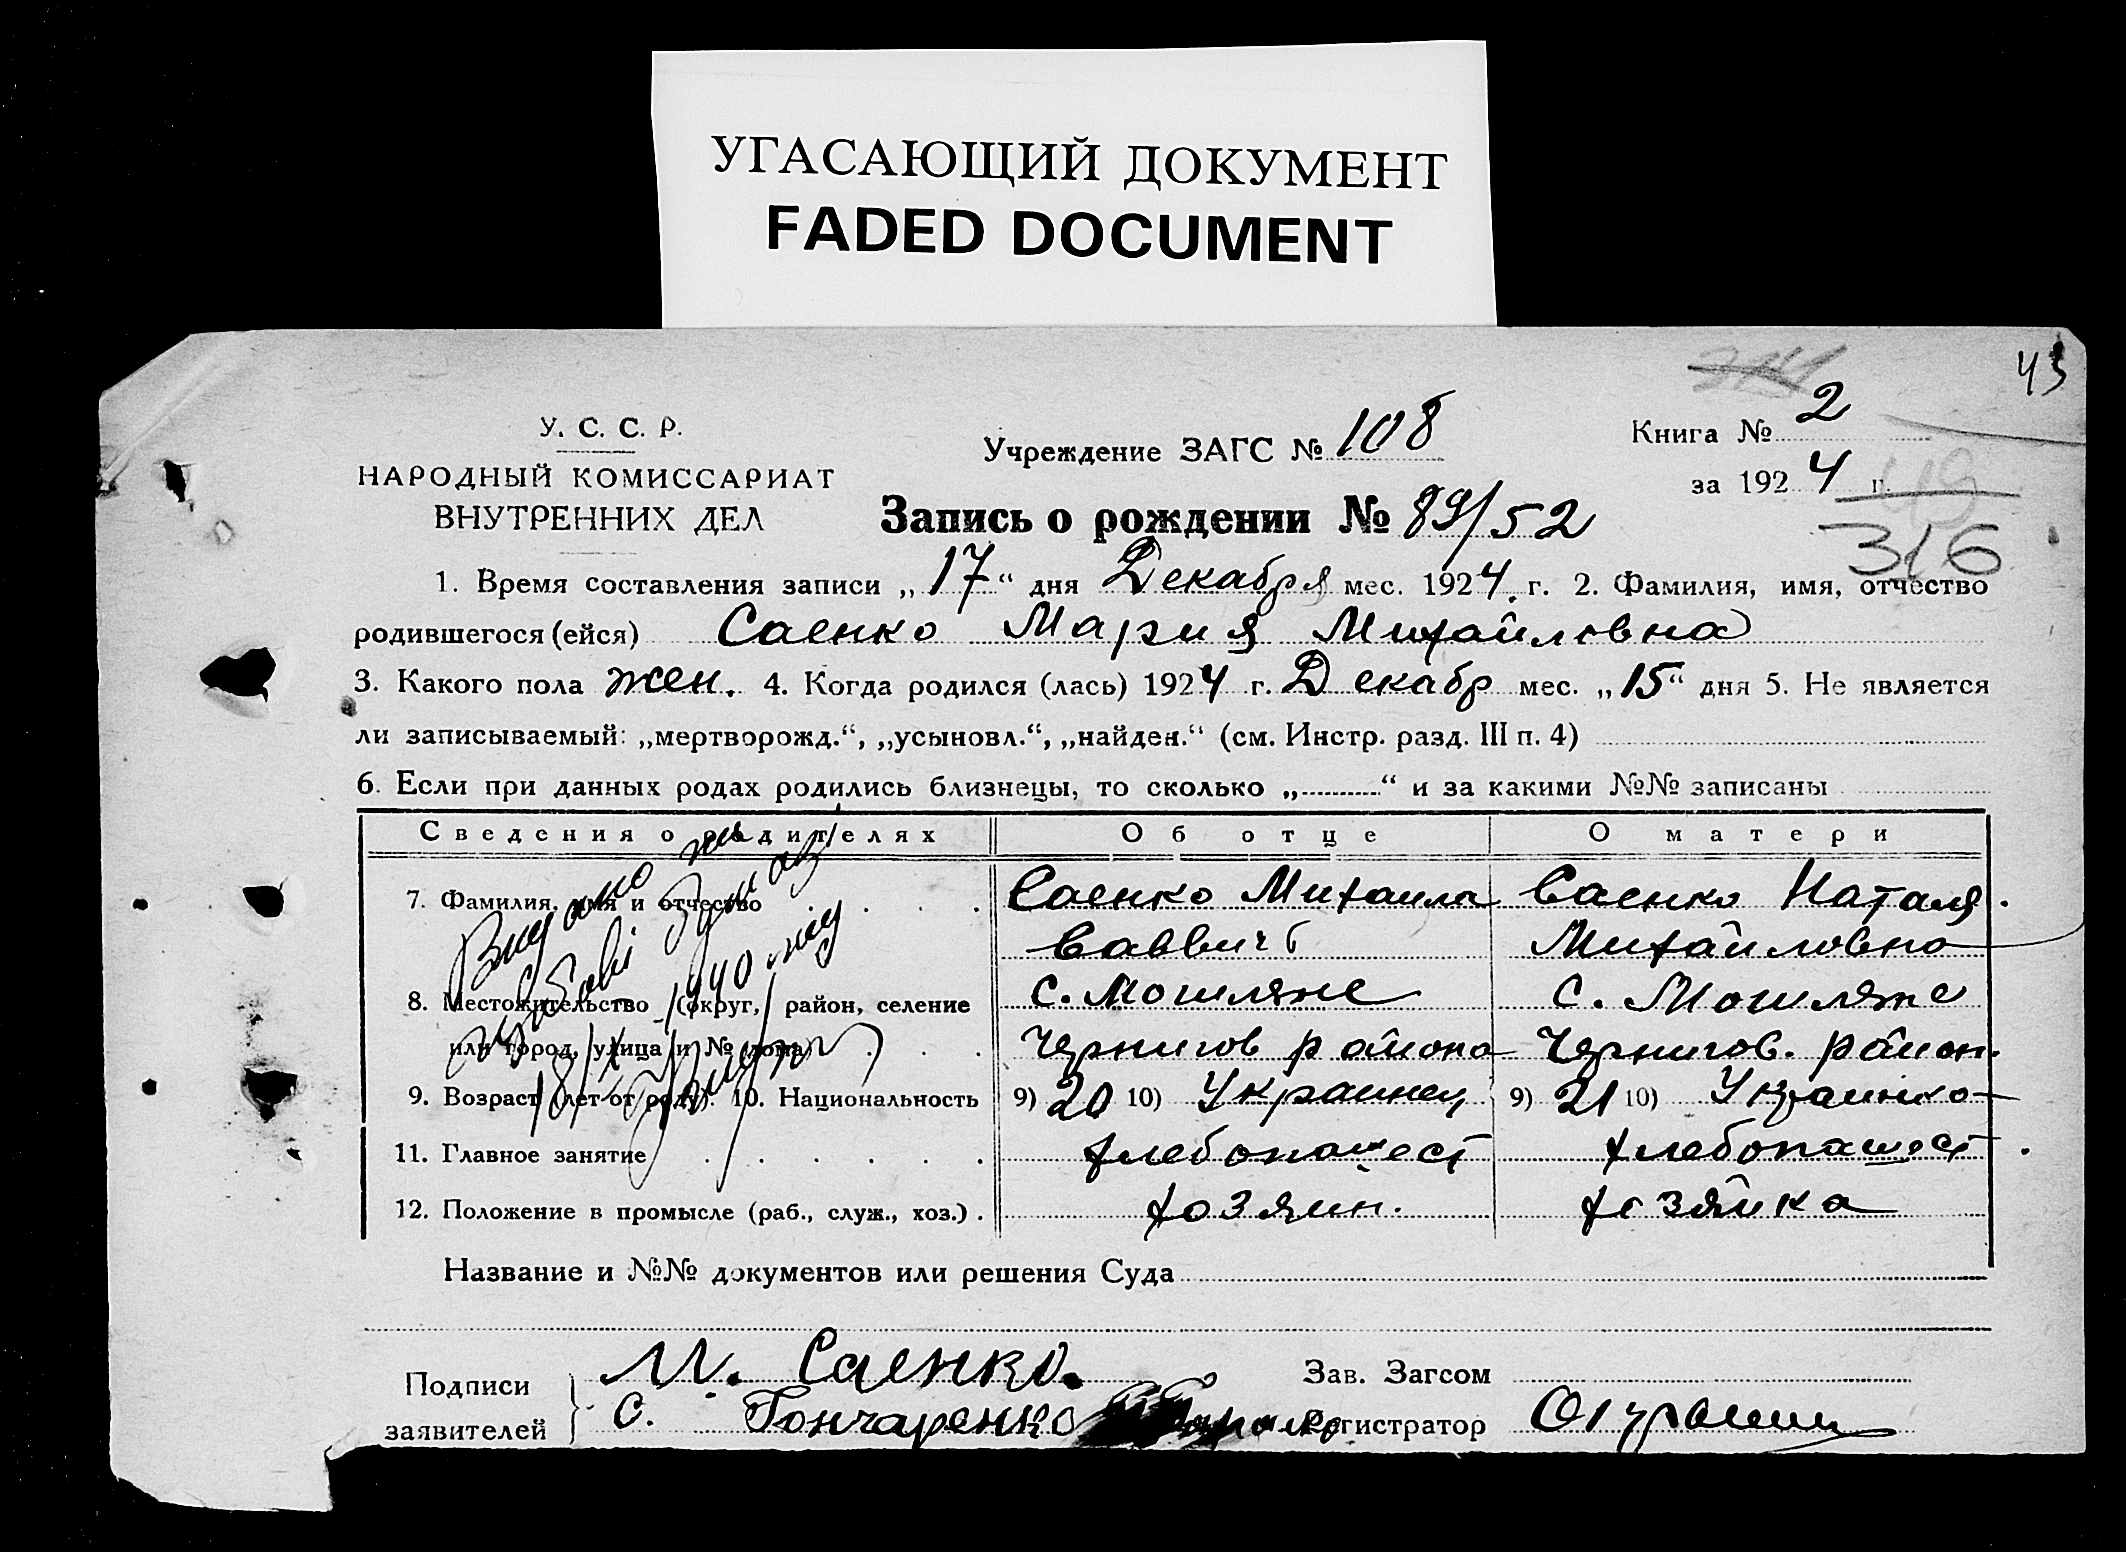 УГАСАЮЩИЙ ДОКУМЕНТ
FADED DOCUMENT
43
У. С. С. Р.
НАРОДНЫЙ КОМИССАРИАТ
ВНУТРЕННИХ ДЕЛ
Учреждение ЗАГС № 108
Книга № 2
за 1924 г.
316
Запись о рождении № 89/52
1. Время составления записи „17“ дня Декабря мес. 1924 г. 2. Фамилия, имя, отчество
родившегося (ейся) Саенко Мария Михайловна
3. Какого пола жен. 4. Когда родился (лась) 1924 г. Декабр мес. „15“ дня 5. Не является
ли записываемый: „мертворожд.“, „усыновл.“, „найден.“ (см. Инстр. разд. III п. 4)
6. Если при данных родах родились близнецы, то сколько „..........“ и за какими №№ записаны
Сведения о родителях Об отце О матери
7. Фамилия, имя и отчество Саенко Михаила Саенко Наталя
Саввич Михайловна
8. Местожительство (округ, район, селение с. Мошляне с. Мошляне
или город, улица и № дома) Чернигов района Чернигов. район.
9. Возраст (лет от роду). 10. Национальность 9) 20 10) Украинец 9) 21 10) Украинка
11. Главное занятие хлебопашест хлебопашест
12. Положение в промысле (раб., служ., хоз.) хозяин. хозяйка
Видано
1940
Название и №№ документов или решения Суда
Подписи
заявителей
М. Саенко.
С. Гончаренко
Зав. Загсом
Регистратор